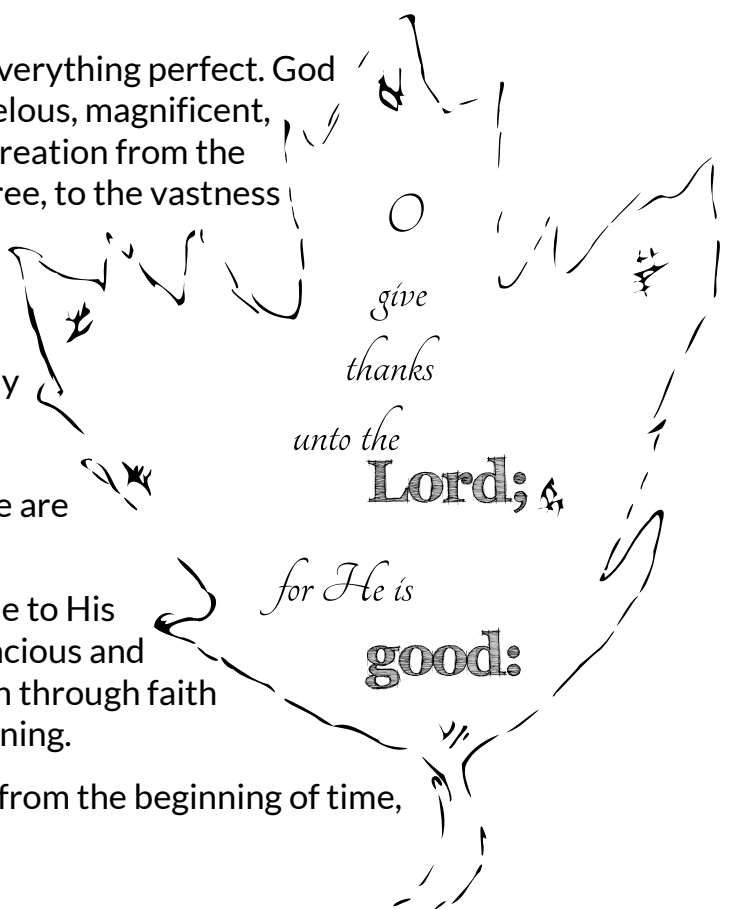 verything perfect. God
elous, magnificent,
reation from the
ree, to the vastness
y
e are
e to His
acious and
n through faith
ning.
from the beginning of time,
O
give
thanks
unto the
Lord;
for He is
good: